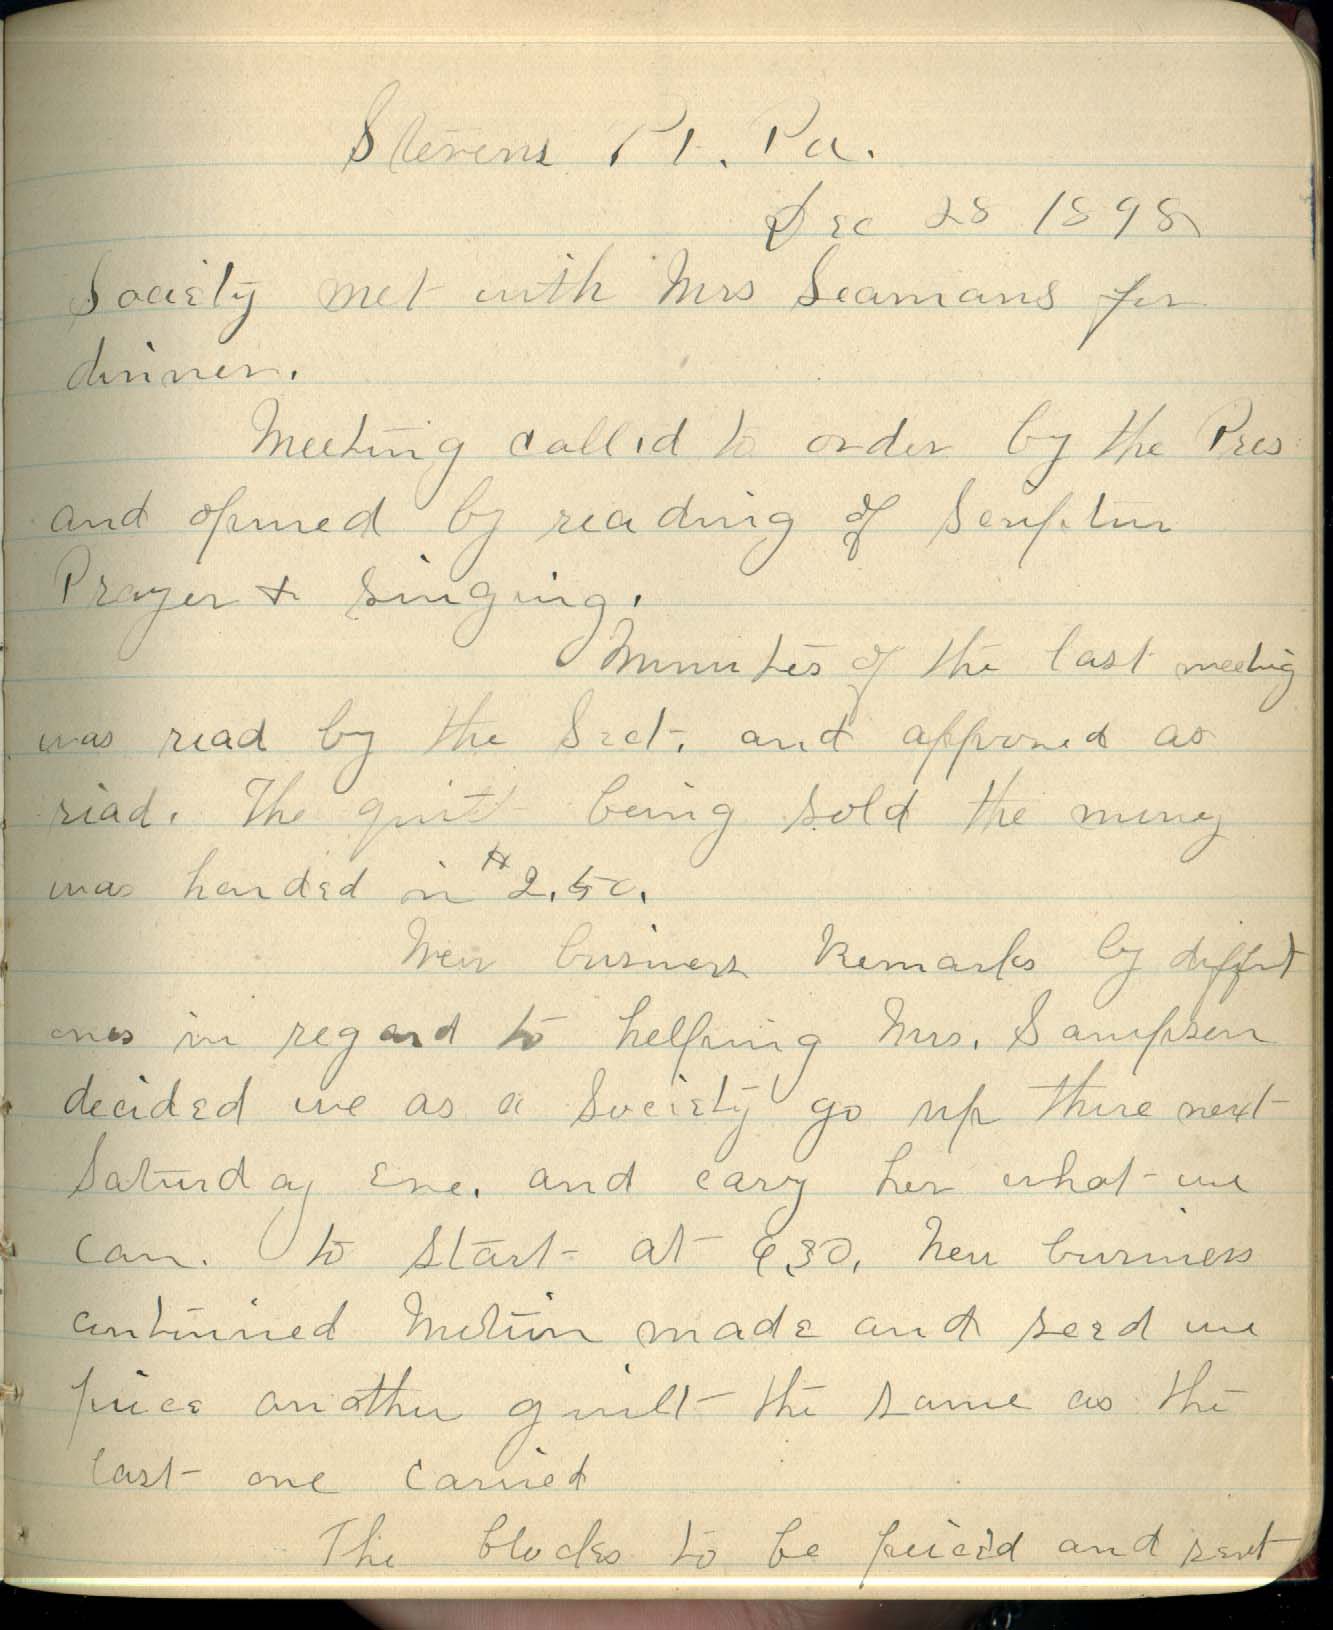 Stevens Pt. Pa.
Dec 28 1898
Society met with Mrs Seamans for
dinner.
Meeting called to order by the Pres
and opened by reading of Scripture
Prayer & singing.
Minutes of the last meeting
was read by the Sect. and approved as
read. The quilt being sold the money
was handed in $2.50.
New business Remarks by diffrent
ones in regard to helping Mrs. Sampson
decided we as a Society go up there next
Saturday Eve. and cary her what we
can. to start at 6,30, New business
continued Motion made and secd we
piece another quilt the same as the
last one carried
The blocks to be pieced and sent